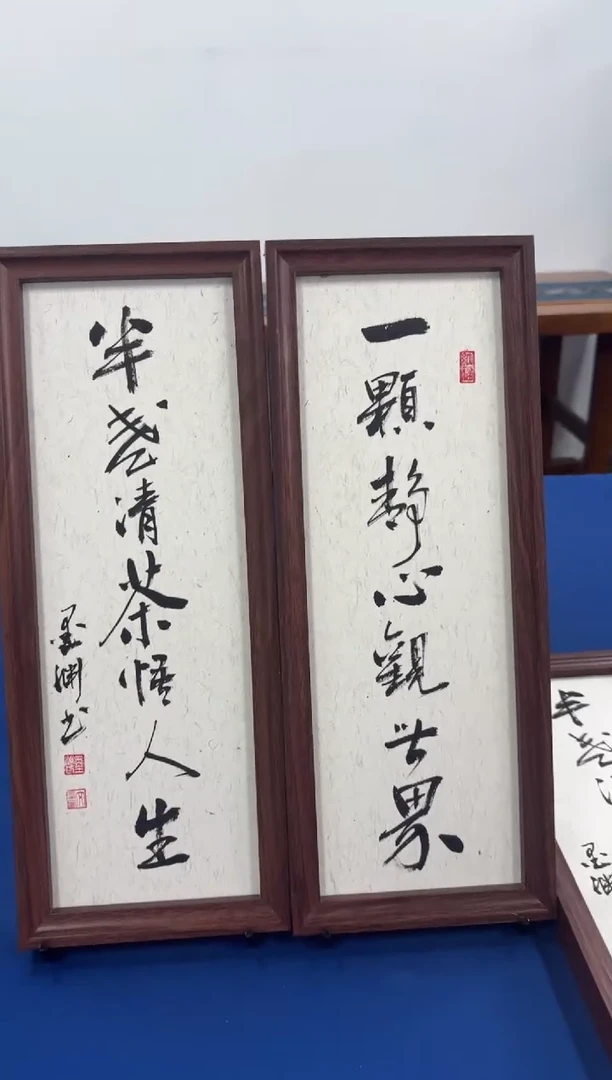 一顆靜心觀世界
半盏清茶悟人生
墨渊书
半盏清
墨渊